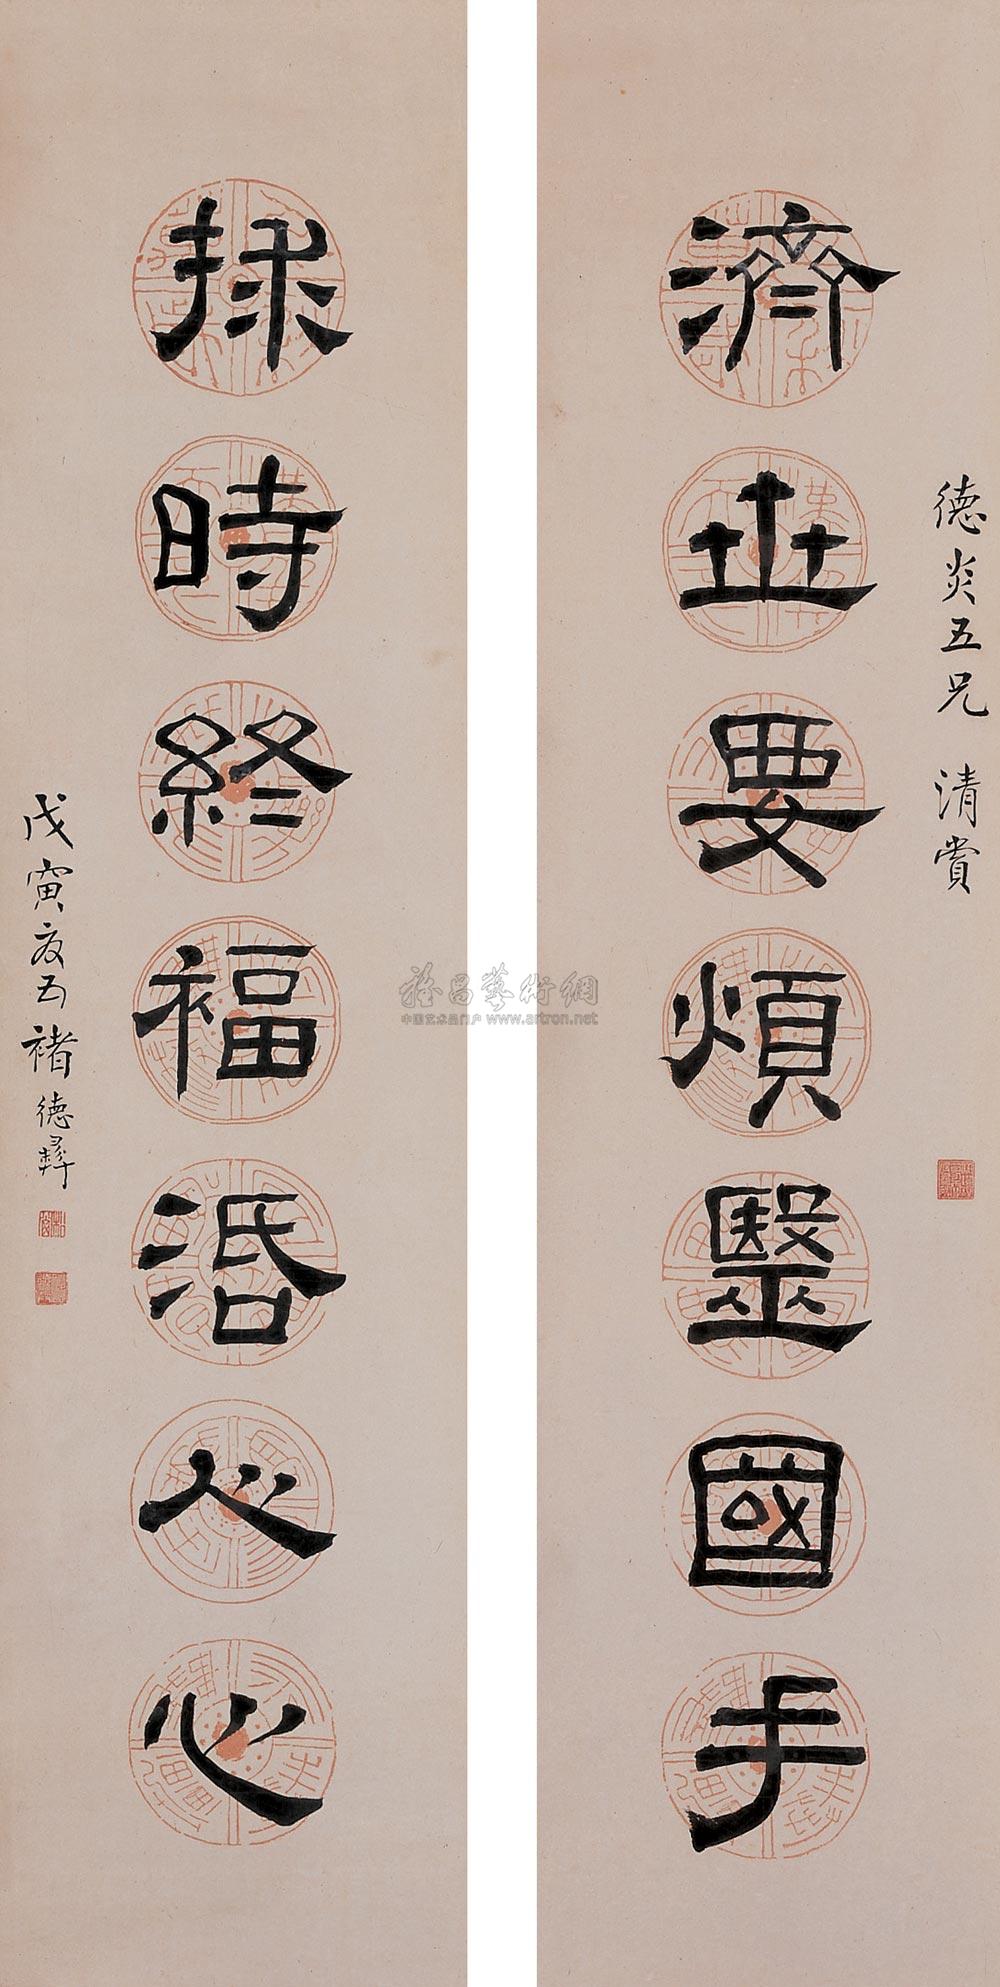 德炎五兄 清賞
濟世要煩毉國手
捄時終福活人心
戊寅夏五褚德彝
雅昌藝術網
中国艺术品门户 www.artron.net